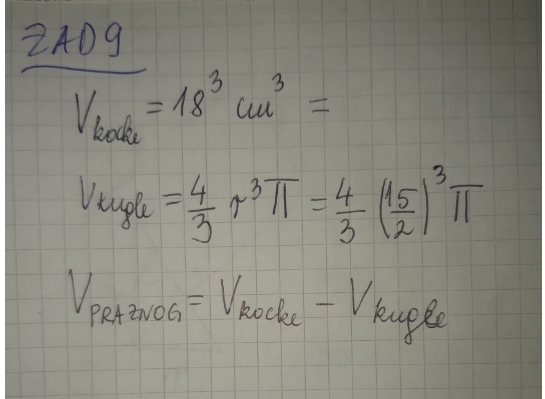 ZAD 9
V_kocke = 18³ cm³ =
V_kugle = 4/3 r³ π = 4/3 (15/2)³ π
V_PRAZNOG = V_kocke - V_kugle